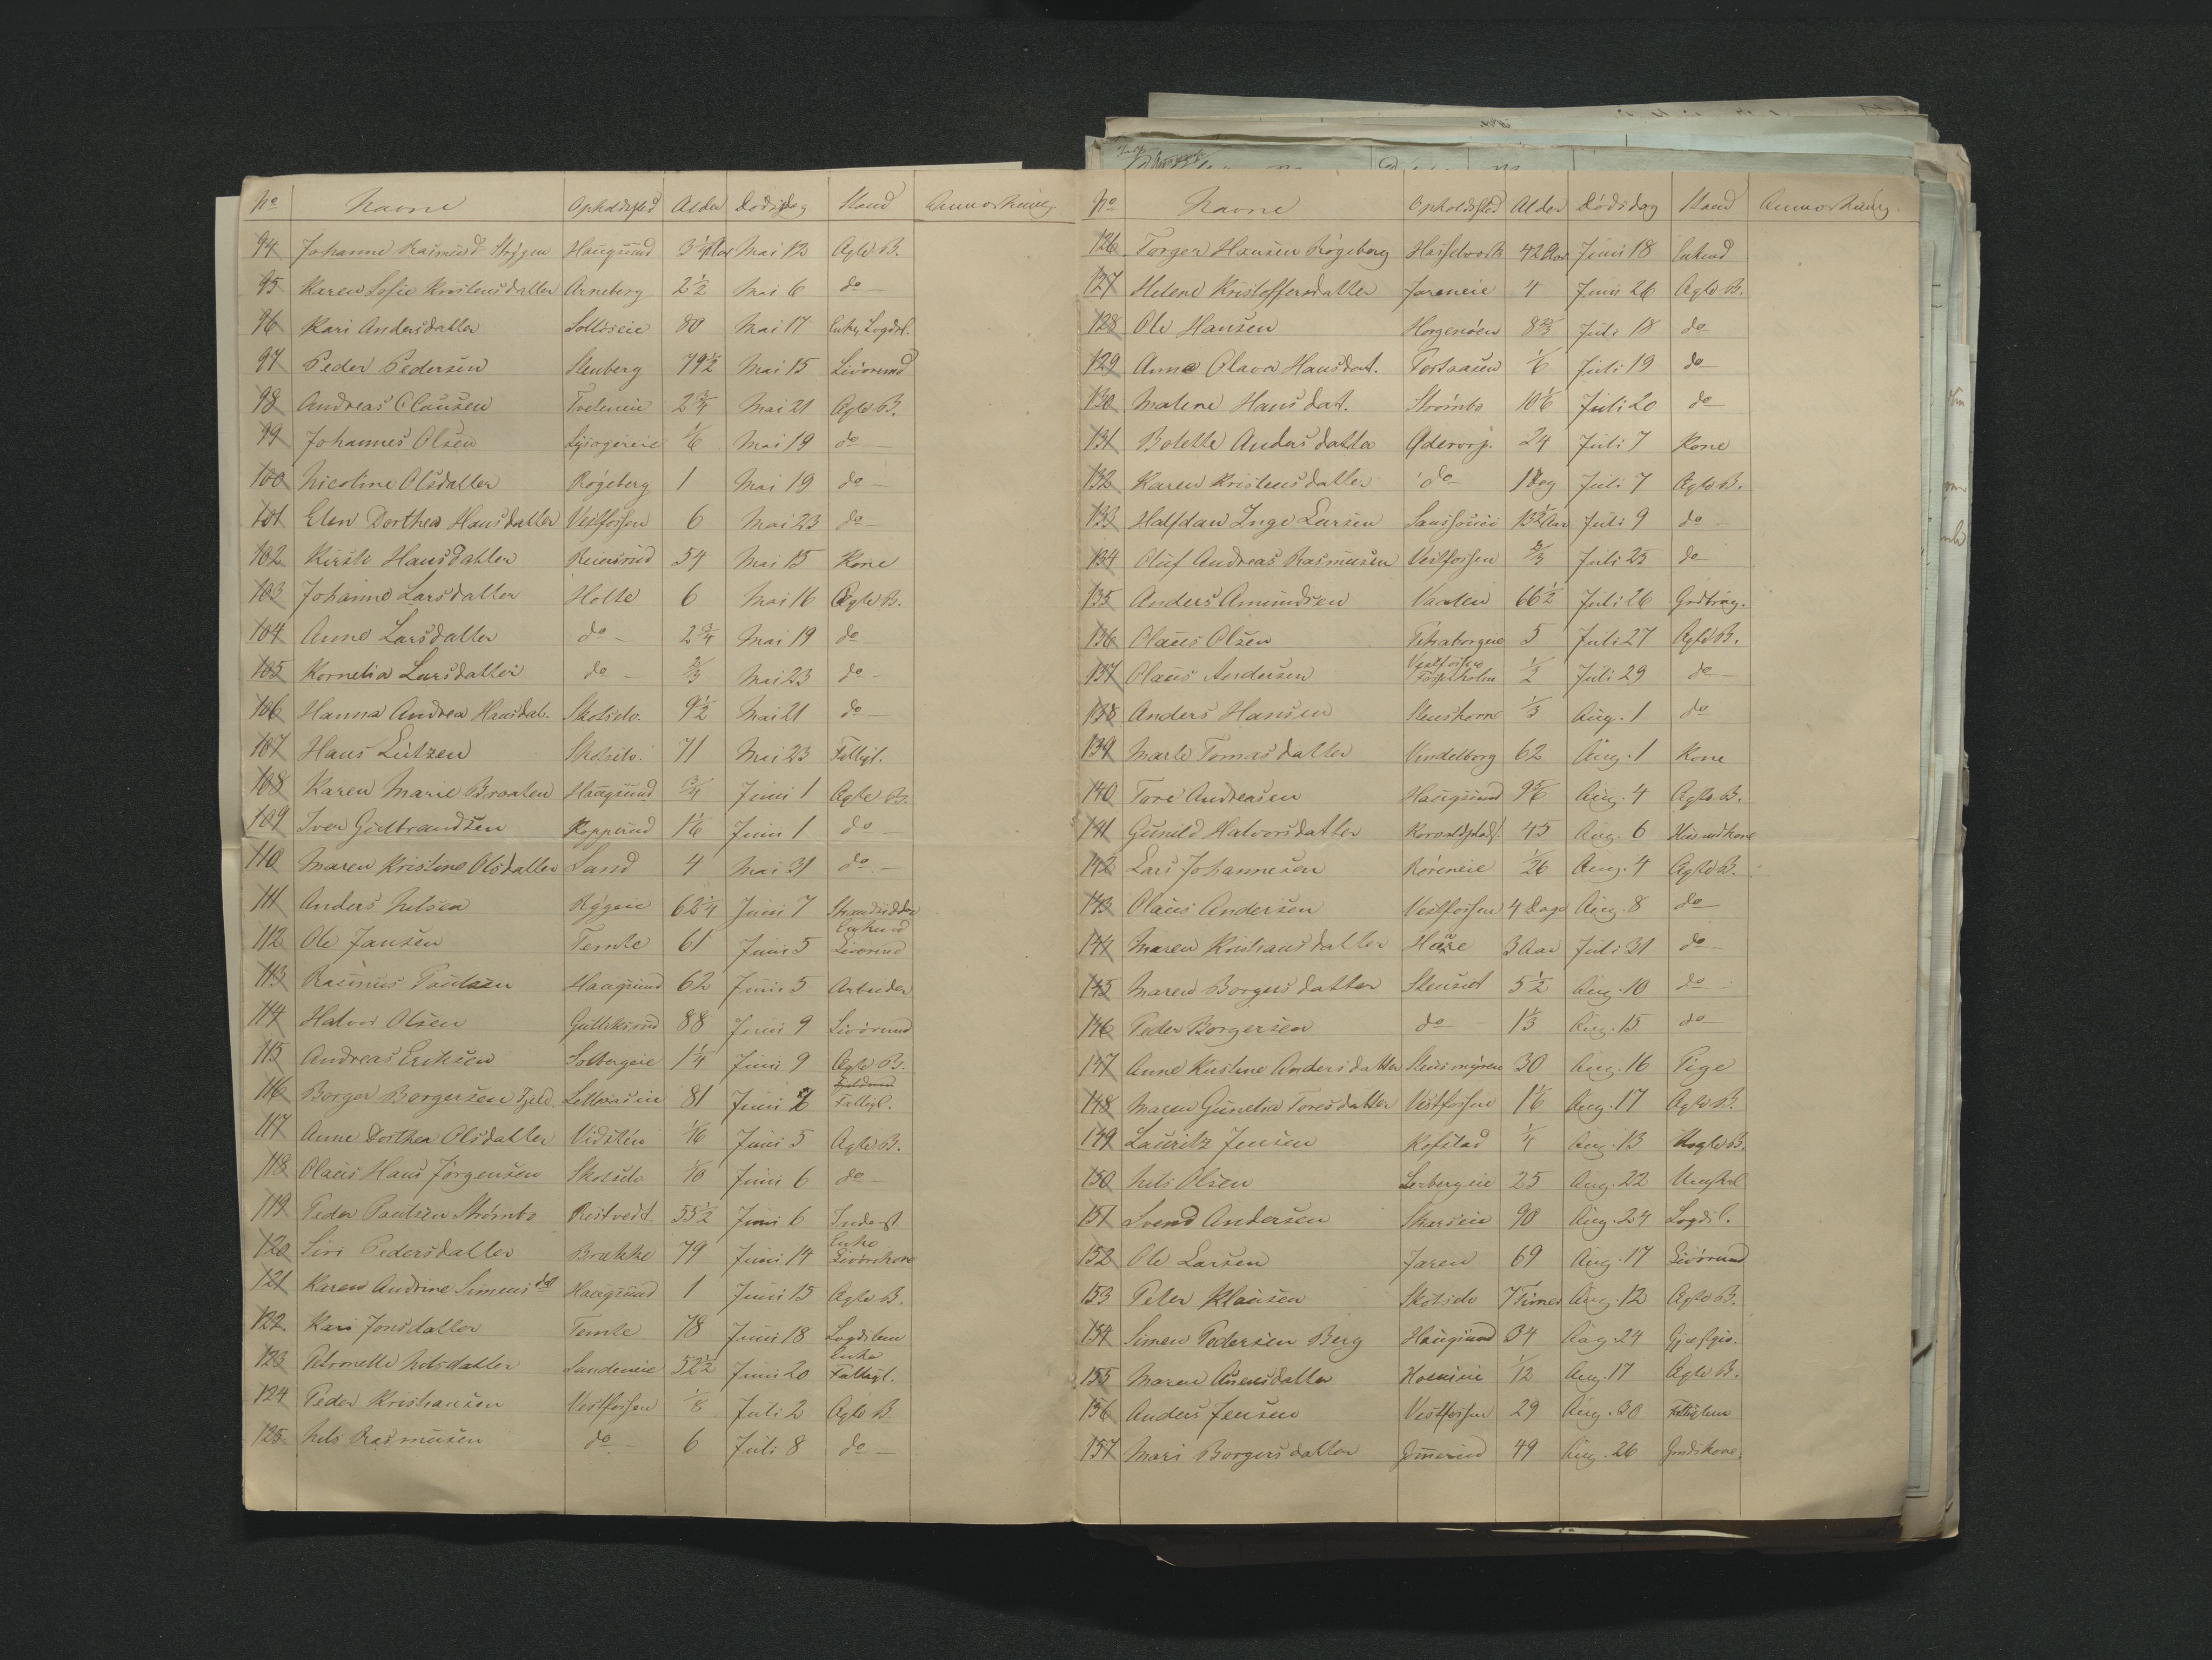 No Navne Opholdssted Alder Dødsdag Stand Anmærkning
94 Johanne Haugsund 3 1/4 Aar Mai 13 Ægte B.
95 Karen Sofie Kristensdatter Arneberg 2 1/2 Mai 6 do
96 Kari Andersdatter 80 Mai 17 Enke, Logdsl.
97 Peder Pedersen Stenberg 79 1/2 Mai 15 Livørmd
98 Andreas Clausen Tveteneie 2 3/4 Mai 21 Ægte B.
99 Johannes Olsen 1/6 Mai 19 do
100 Nicoline Olsdatter Røgeberg 1 Mai 19 do
101 Elen Dorthea Hansdatter Vestfossen 6 Mai 23 do
102 Kirsti Hansdatter 54 Mai 15 Kone
103 Johanne Larsdatter Holte 6 Mai 16 Ægte B.
104 Anne Larsdatter do 2 3/4 Mai 19 do
105 Kornelia Larsdatter do 2/3 Mai 23 do
106 Hanna Andrea Hansdat. Skotselv. 9 1/2 Mai 21 do
107 Hans Lützen Skotselv. 71 Mai 23 Fattigl.
108 Karen Marie Braaten Haugsund 3/4 Juni 1 Ægte B.
109 Iver Gulbrandsen Kopperud 1 1/6 Juni 1 do
110 Maren Kristine Olsdatter Sand 4 Mai 31 do
111 Anders Nilsen 62 1/4 Juni 7 Strandsidder
112 Ole Jansen Temte 61 Juni 5 Enkemd Livørmd
113 Rasmus Paulsen Haugsund 62 Juni 5 Arbeider
114 Halvor Olsen Gulliksrud 88 Juni 9 Livørmd
115 Andreas Eriksen Solbergeie 1 1/4 Juni 9 Ægte B.
116 Borger Borgersen 81 Juni 6 Fattigl.
117 Anne Dorthea Olsdatter 1/16 Juni 5 Ægte B.
118 Olaus Hans Jörgensen Skotselv 1/10 Juni 6 do
119 Peder Paulsen Strømbo 55 1/2 Juni 6 Inderst
120 Siri Pedersdatter Brække 79 Juni 14 Enke Livørskone
121 Karen Andrine Simensdat Haugsund 1 Juni 15 Ægte B.
122 Kari Jonsdatter Temte 78 Juni 18 Logdslem
123 Petronelle Nilsdatter Sandeneie 52 1/2 Juni 20 Enke Fattigl.
124 Peder Kristiansen Vestfossen 1/8 Juli 2 Ægte B.
125 Nils Rasmusen do 6 Juli 8 do
No Navne Opholdssted Alder Dødsdag Stand Anmærkning.
126 Torger Hansen Røgeberg Hasselverk 42 Aar Juni 18 Enkemd
127 Helene Kristoffersdatter Jareneie 4 Juni 26 Ægte B.
128 Ole Hansen Horgenøen 8 2/3 Juli 18 do
129 Anne Olava Hansdat. 1/6 Juli 19 do
130 Malene Hansdat. Strømbo 10 1/6 Juli 20 do
131 Bolette Andersdatter 24 Juli 7 Kone
132 Karen Kristensdatter do 1 Dag Juli 7 Ægte B.
133 Halfdan Inge Larsen Juli 9 do
134 Oluf Andreas Rasmusen Vestfossen 2/3 Juli 25 do
135 Anders Amundsen 66 1/2 Juli 26
136 Olaus Olsen 5 Juli 27 Ægte B.
137 Olaus Andersen Vestfossen Fosseholm 1/2 Juli 29 do
138 Anders Hansen 1/3 Aug. 1 do
139 Marte Tomasdatter Vindelborg 62 Aug. 1 Kone
140 Tore Andreasen Haugsund 9 5/6 Aug. 4 Ægte B.
141 Gunild Halvorsdatter 45 Aug. 6 Husmdkone
142 Lars Johannesen 1/26 Aug. 4 Ægte B.
143 Olaus Andersen Vestfossen 4 Dage Aug. 8 do
144 Maren Kristiansdatter 3 Aar Juli 31 do
145 Maren Borgersdatter Stenset 5 1/2 Aug. 10 do
146 Peder Borgersen do 1 1/3 Aug. 15 do
147 Anne Kirstine Andersdatter 30 Aug. 16 Pige
148 Maren Gunelia Toresdatter Vestfossen 1 1/6 Aug. 17 Ægte B.
149 Lauritz Jensen Kofstad 1/4 Aug. 13 Uægte B.
150 Nils Olsen 25 Aug. 22 Ungkal
151 Svend Andersen 90 Aug. 24 Logdsl.
152 Ole Larsen Jaren 69 Aug. 17 Livørmd
153 Peter Klausen Skotselv 7 Timer Aug. 12 Ægte B.
154 Simen Pedersen Berg Haugsund 34 Aug. 24 Gjæstgiv.
155 Maren 1/12 Aug. 17 Ægte B.
156 Anders Jensen Vestfossen 29 Aug. 30 Fattiglem
157 Mari Borgersdatter 49 Aug. 26